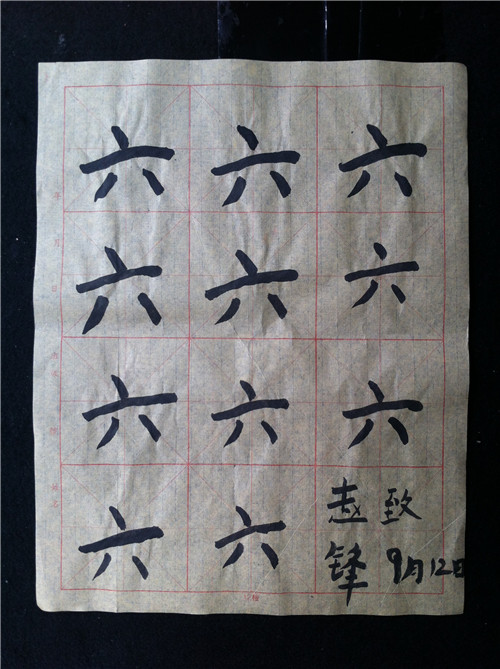 六 六 六
六 六 六
六 六 六
六 六
致
锋 9月12日